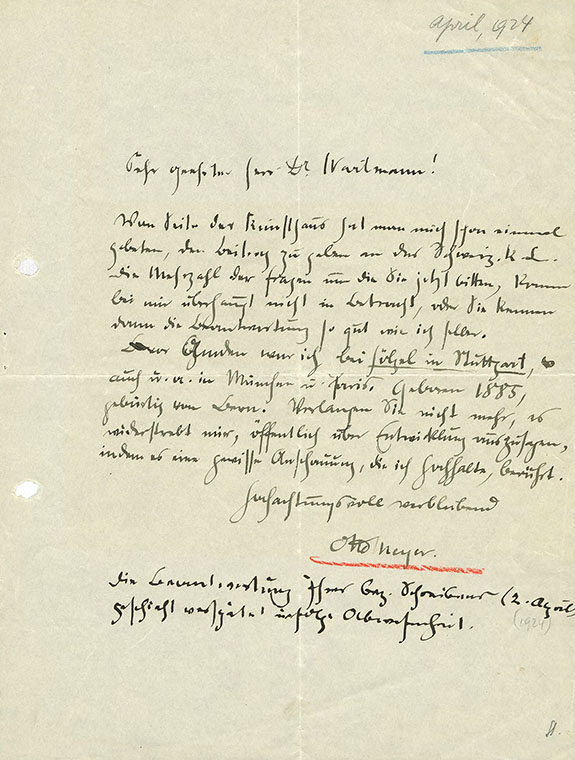 April, 1924
Sehr geehrter Herr Dr. Wartmann!
Von Seite der Kunsthaus hat man mich schon einmal
gebeten, den Beitrag zu geben an das Schweiz. K. L.
die Mehrzahl der Fragen um die Sie jetzt bitten, kommen
bei mir überhaupt nicht in Betracht, oder Sie kennen
dann die Beantwortung so gut wie ich selber.
war ich bei Hölzel in Stuttgart,
auch u. a. in München u. Paris. Geboren 1885,
gebürtig von Bern. Verlangen Sie nicht mehr, es
widerstrebt mir, öffentlich über Entwicklung auszusagen,
indem es eine gewisse Anschauung, die ich hochhalte, berührt.
Hochachtungsvoll verbleibend
Otto Meyer.
die Beantwortung Ihres Schreibens (2. April
(1924)
geschieht verspätet infolge Abwesenheit.